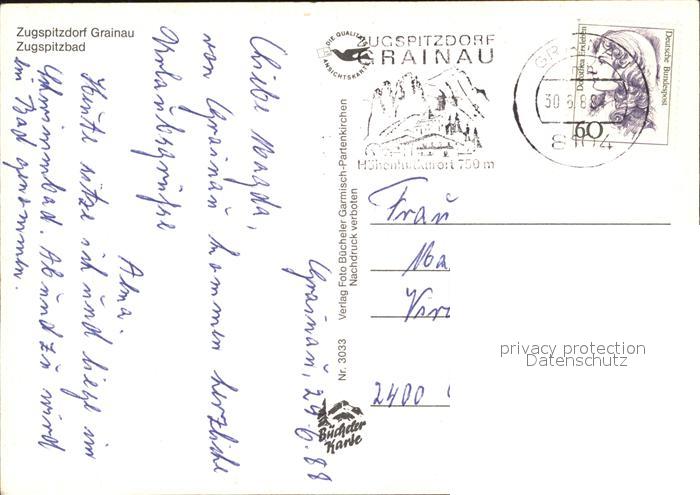 Zugspitzdorf Grainau
Zugspitzbad
DIE QUALITÄTS
ANSICHTSKARTE
ZUGSPITZDORF
GRAINAU
Höhenluftkurort 750 m
30.6.88
8104
Dorothea Erxleben
Deutsche Bundespost
60
Grainau, 29.6.88
Liebe Magda,
von Grainau kommen herzliche
Urlaubsgrüße
Alma.
Heute sitze ich und liege im
Schwimmbad. Ab und zu wird
ein Bad genommen.
Nr. 3033 Verlag Foto Bücheler Garmisch-Partenkirchen
Nachdruck verboten
Bücheler
Karte
Frau
Ma
Vir
2400
privacy protection
Datenschutz